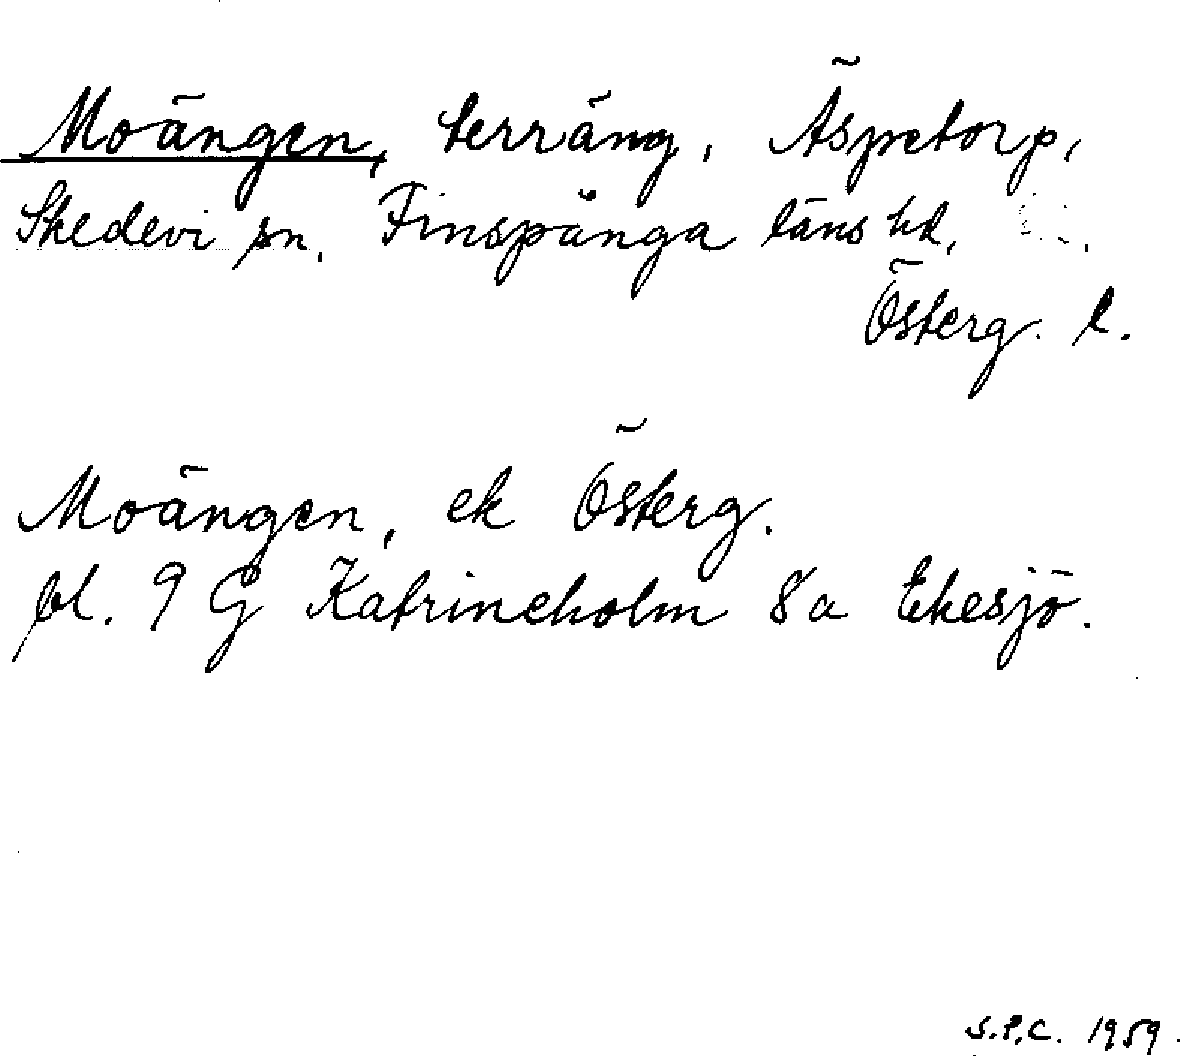 Moängen, terräng, Äspetorp,
Skedevi sn. Finspånga läns hd.
Österg. l.
Moängen, ek Österg.
bl. 9 G Katrineholm 8a Ekesjö.
S.P.C. 1959.